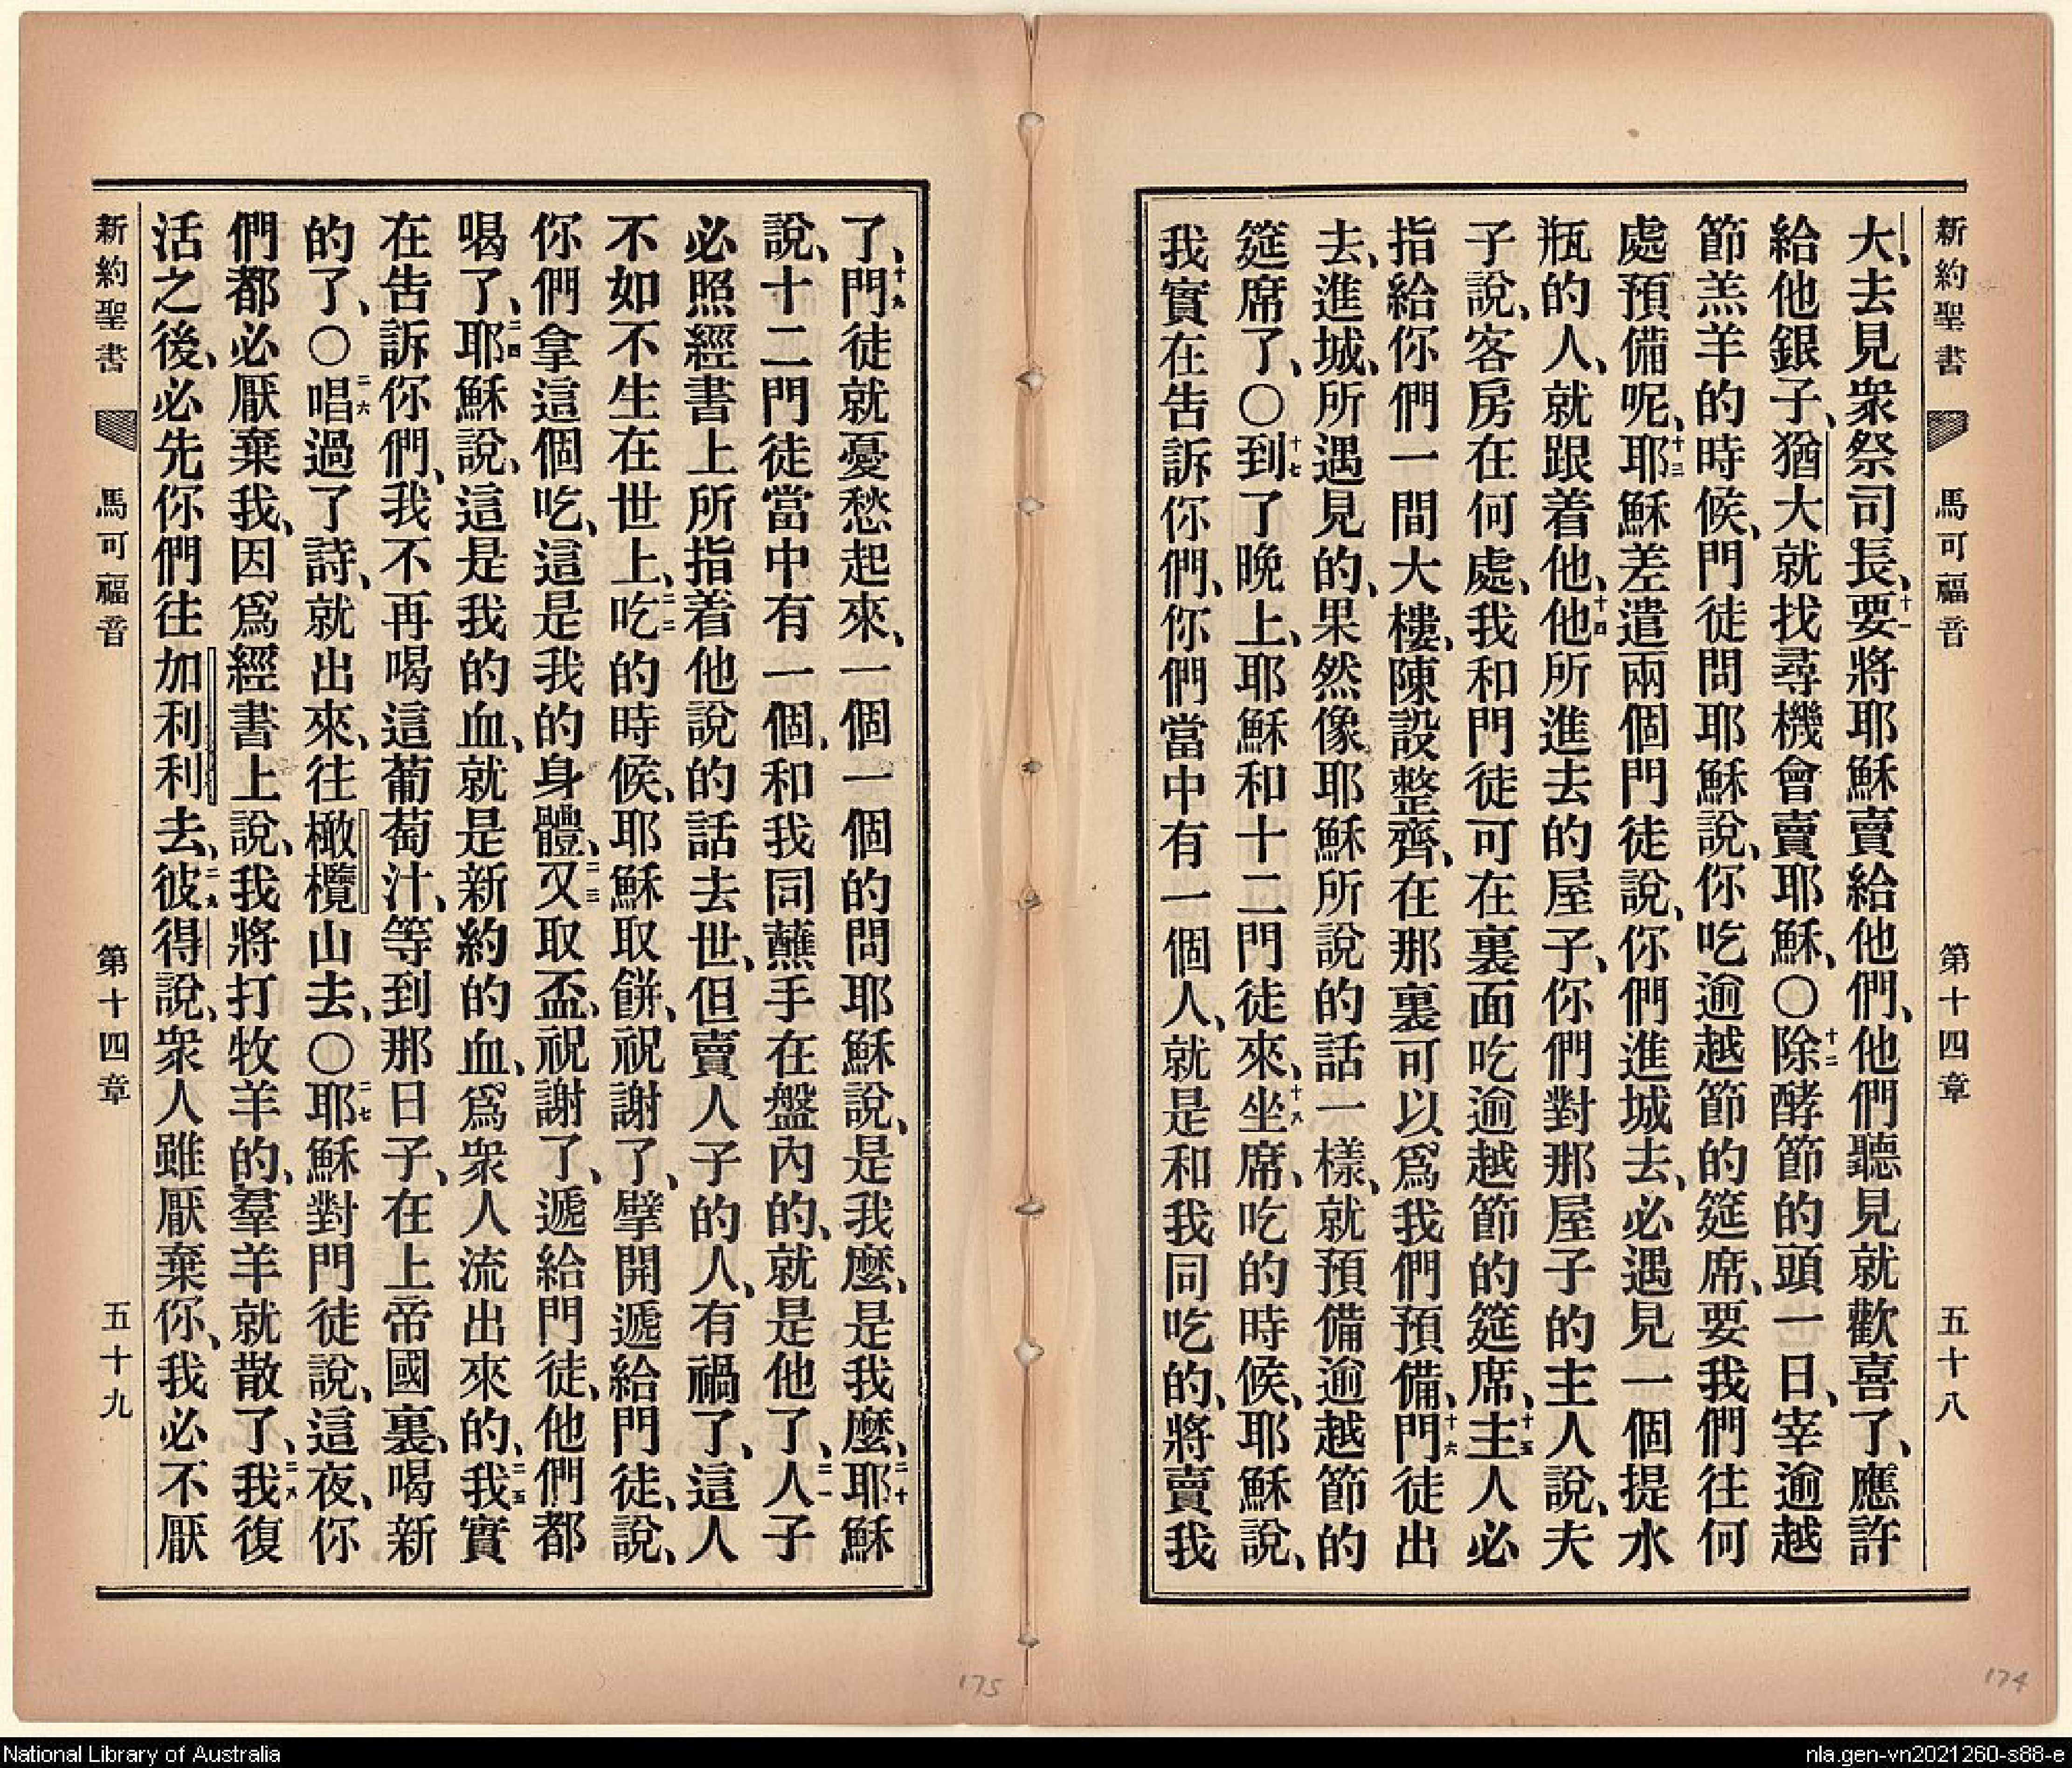 新約聖書 馬可福音 第十四章 五十八
大、去見衆祭司長、十一要將耶穌賣給他們、他們聽見就歡喜了、應許
給他銀子、猶大就找尋機會賣耶穌、〇十二除酵節的頭一日、宰逾越
節羔羊的時候、門徒問耶穌說、你吃逾越節的筵席、要我們往何
處預備呢、十三耶穌差遣兩個門徒說、你們進城去、必遇見一個提水
瓶的人、就跟着他、十四他所進去的屋子、你們對那屋子的主人說、夫
子說、客房在何處、我和門徒可在裏面吃逾越節的筵席、十五主人必
指給你們一間大樓、陳設整齊、在那裏可以爲我們預備、十六門徒出
去、進城、所遇見的、果然像耶穌所說的話一樣、就預備逾越節的
筵席了、〇十七到了晚上、耶穌和十二門徒來、十八坐席、吃的時候、耶穌說、
我實在告訴你們、你們當中有一個人、就是和我同吃的、將賣我
了、十九門徒就憂愁起來、一個一個的問耶穌說、是我麼、是我麼、二十耶穌
說、十二門徒當中有一個、和我同蘸手在盤內的、就是他了、二一人子
必照經書上所指着他說的話去世、但賣人子的人、有禍了、這人
不如不生在世上、二二吃的時候、耶穌取餅、祝謝了、擘開遞給門徒、說、
你們拿這個吃、這是我的身體、二三又取盃、祝謝了、遞給門徒、他們都
喝了、二四耶穌說、這是我的血、就是新約的血、爲衆人流出來的、二五我實
在告訴你們、我不再喝這葡萄汁、等到那日子、在上帝國裏、喝新
的了、〇二六唱過了詩、就出來、往橄欖山去、〇二七耶穌對門徒說、這夜、你
們都必厭棄我、因爲經書上說、我將打牧羊的、羣羊就散了、二八我復
活之後、必先你們往加利利去、二九彼得說、衆人雖厭棄你、我必不厭
新約聖書 馬可福音 第十四章 五十九
175
174
National Library of Australia
nla.gen-vn2021260-s88-e